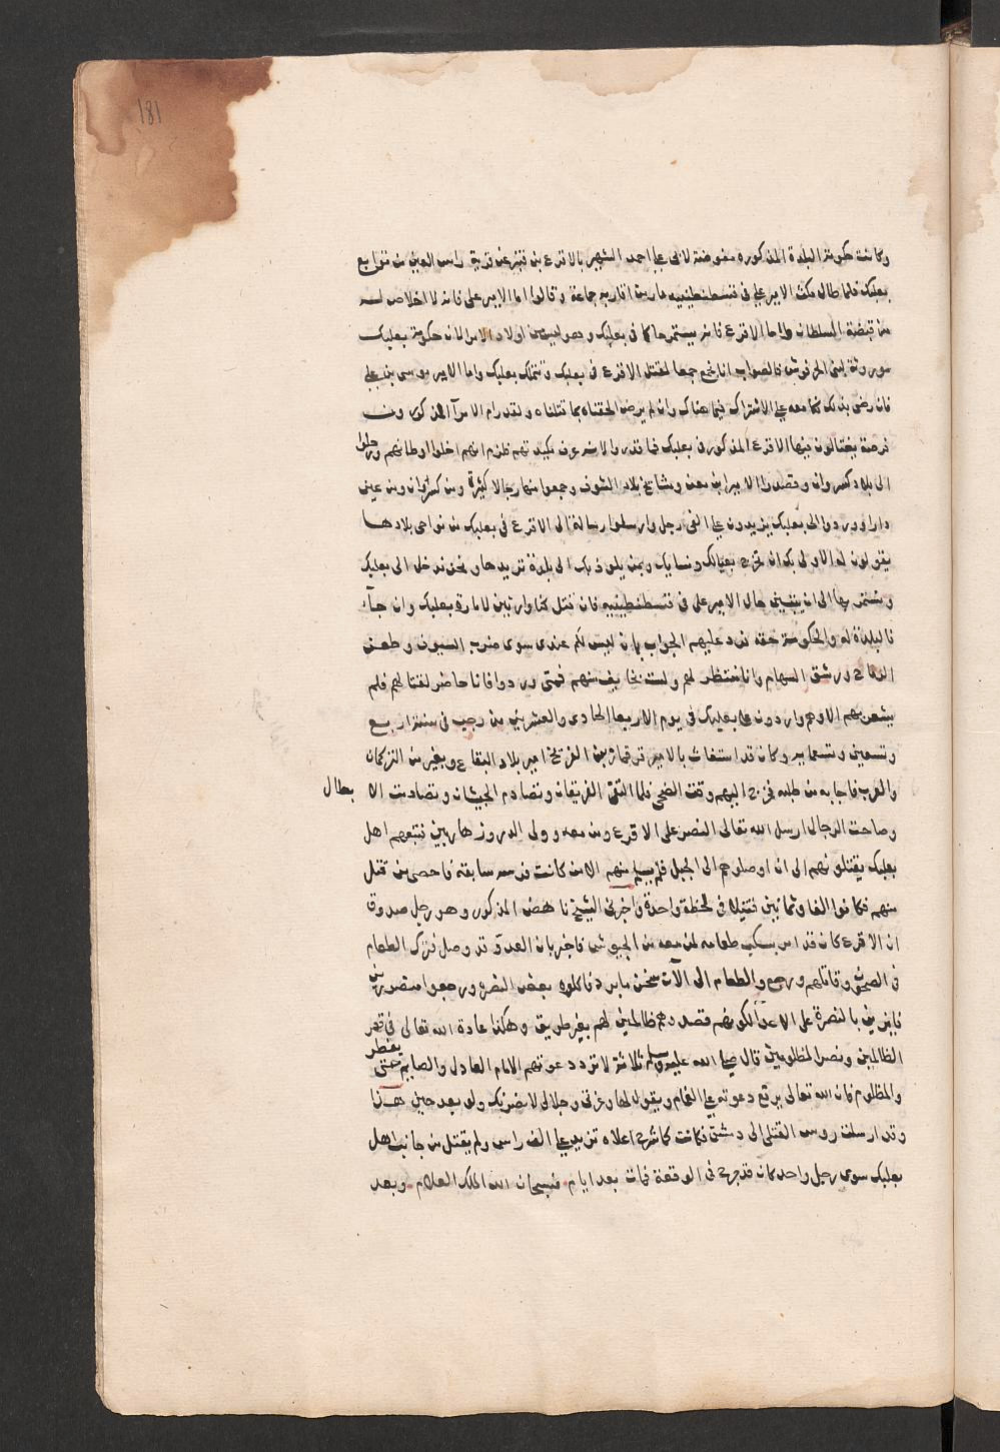 181
وكانت حكومة البلدة المذكورة مفوضة لابي علي احمد الشهير بالاقرع بن قنبر من قرية راس العين من توابع
بعلبك فلما طال مكث الامير علي في قسطنطينيه صار من اقاربه جماعة وقالوا اما الامير علي فانه لا خلاص له
من قبضة السلطان واما الاقرع فانه يستمر حاكما في بعلبك وهو ليس من اولاد الامرا لان حكومة بعلبك
موروثة لبني الحرفوش فالصواب انا نجمع جمعا لقتل الاقرع في بعلبك ونتملك بعلبك واما الامير موسى بن علي
فان رضي بذلك كنا معه علي الاشتراك فيما هناك وان لم يرض الحقناه بما قتلناه ولقد رام الامرآ المذكورون
فرصة يغتالون فيها الاقرع المذكور في بعلبك فما قدروا لانه عرف مكيدتهم فلزم انهم اخلوا اوطانهم ورحلوا
الى بلاد كسروان وقصدوا الامير ابن معن ومشايخ بلاد الشوف وجمعوا منها رجالا كثيرة ومن كسروان ومن عين
دارا ووردوا الى بعلبك يزيدون علي الفي رجل وارسلوا رسالة الى الاقرع في بعلبك من نواحي بلادها
يقولون له الاولى بك ان تخرج بعيالك ونسايك وبمن يلوذ بك الى بلدة تريدها ونحن ندخل الى بعلبك
ونستمر بها الى ان يتبين حال الامير علي في قسطنطينيه فان قتل كنا وارثين لامارة بعلبك وان جآء
فالبلدة له والحكومة حقه فرد عليهم الجواب بان ليس لكم عندي سوى ضرب السيوف وطعن
الرماح ورشق السهام وانا منتظر لهم ولست بخايف منهم فمتى وردوا فانا حاضر لقتالهم فلم
يشعر بهم الا وهم واردون علي بعلبك في يوم الاربعا الحادي والعشرين من رجب في سنة اربع
وتسعين وتسعمايه وكان قد استغاث بالامير قرقماز بن الفريخ امير بلاد البقاع وبغيره من التركمان
والعرب فاجابه من طلبه فخرج اليهم وقت الضحى فلما التقى الفريقان وتصادم الجيشان وتصادمت الا بطال
وصاحت الرجال ارسل الله تعالى النصر على الاقرع ومن معه وولى الدروز هاربين فتبعهم اهل
بعلبك يقتلونهم الى ان اوصلوهم الى الجبل فلم يسلم منهم الا من كانت فرسه سابقة فاحصى من قتل
منهم فكانوا الفا وثمانين قتيلا في لحظة واحدة واخبرني الشيخ ناهض المذكور وهو رجل صدوق
ان الاقرع كان قد امر بسكب طعامه لمن معه من الجيوش فاخبر بان العدو قد وصل فترك الطعام
في الصحون وقاتلهم ورجع والطعام الى الآن سخن ما برد فاكلوه بعض النصر ورجعوا منصورين
فايزين بالنصرة على الاعدآ لكونهم قصدوهم ظالمين لهم بغير طريق وهكذا عادة الله تعالى في قهر
الظالمين ونصر المظلومين قال صلي الله عليه وسلم ثلاثة لا ترد دعوتهم الامام العادل والصايم حتى يفطر
والمظلوم فان الله تعالى يرفع دعوته علي الغمام ويقول لها وعزتي وجلالي لانصرنك ولو بعد حين هذا
وقد ارسلت روس القتلى الى دمشق فكانت كما شرح اعلاه تزيد علي الف راس ولم يقتل من جانب اهل
بعلبك سوى رجل واحد كان قد جرح في الوقعة فمات بعد ايام فسبحان الله الملك العلام وبعد